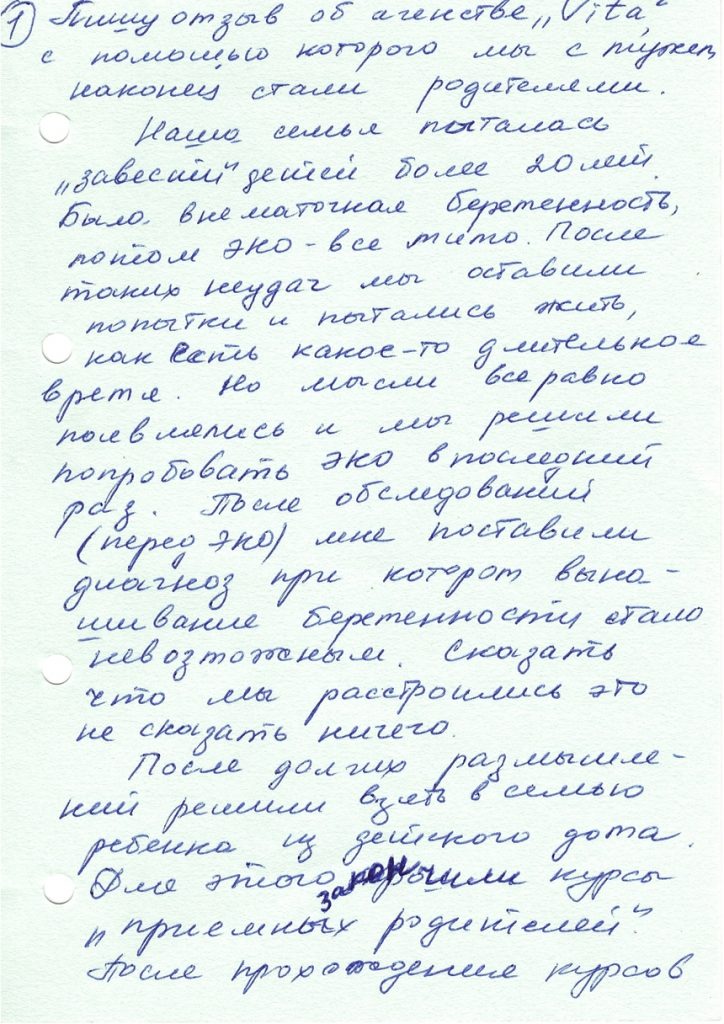 1 Пишу отзыв об агенстве „Vita“
с помощью которого мы с мужем
наконец стали родителями.
Наша семья пыталась
„завести“ детей более 20 лет.
Было внематочная беременность,
потом ЭКО - все мимо. После
таких неудач мы оставили
попытки и пытались жить,
как есть какое-то длительное
время. Но мысли все равно
появлялись и мы решили
попробовать ЭКО в последний
раз. После обследований
(перед ЭКО) мне поставили
диагноз при котором вына-
шивание беременности стало
невозможным. Сказать
что мы расстроились это
не сказать ничего.
После долгих размышле-
ний решили взять в семью
ребенка из детского дома.
Для этого закончили курсы
„приемных родителей“.
После прохождения курсов